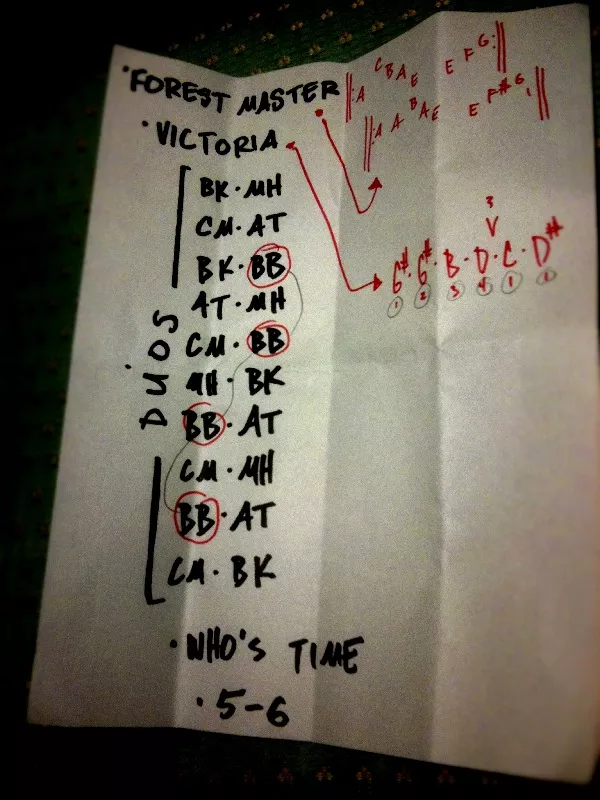 • FOREST MASTER
• VICTORIA
BK • MH
CM • AT
BK • BB
AT • MH
CM • BB
MH • BK
BB • AT
CM • MH
BB • AT
CM • BK
• DUOS
• WHO'S TIME
• 5-6
A C B A E E F G
A A B A E E F# G
3
V
G# • G# • B • D • C • D#
1 2 3 4 1